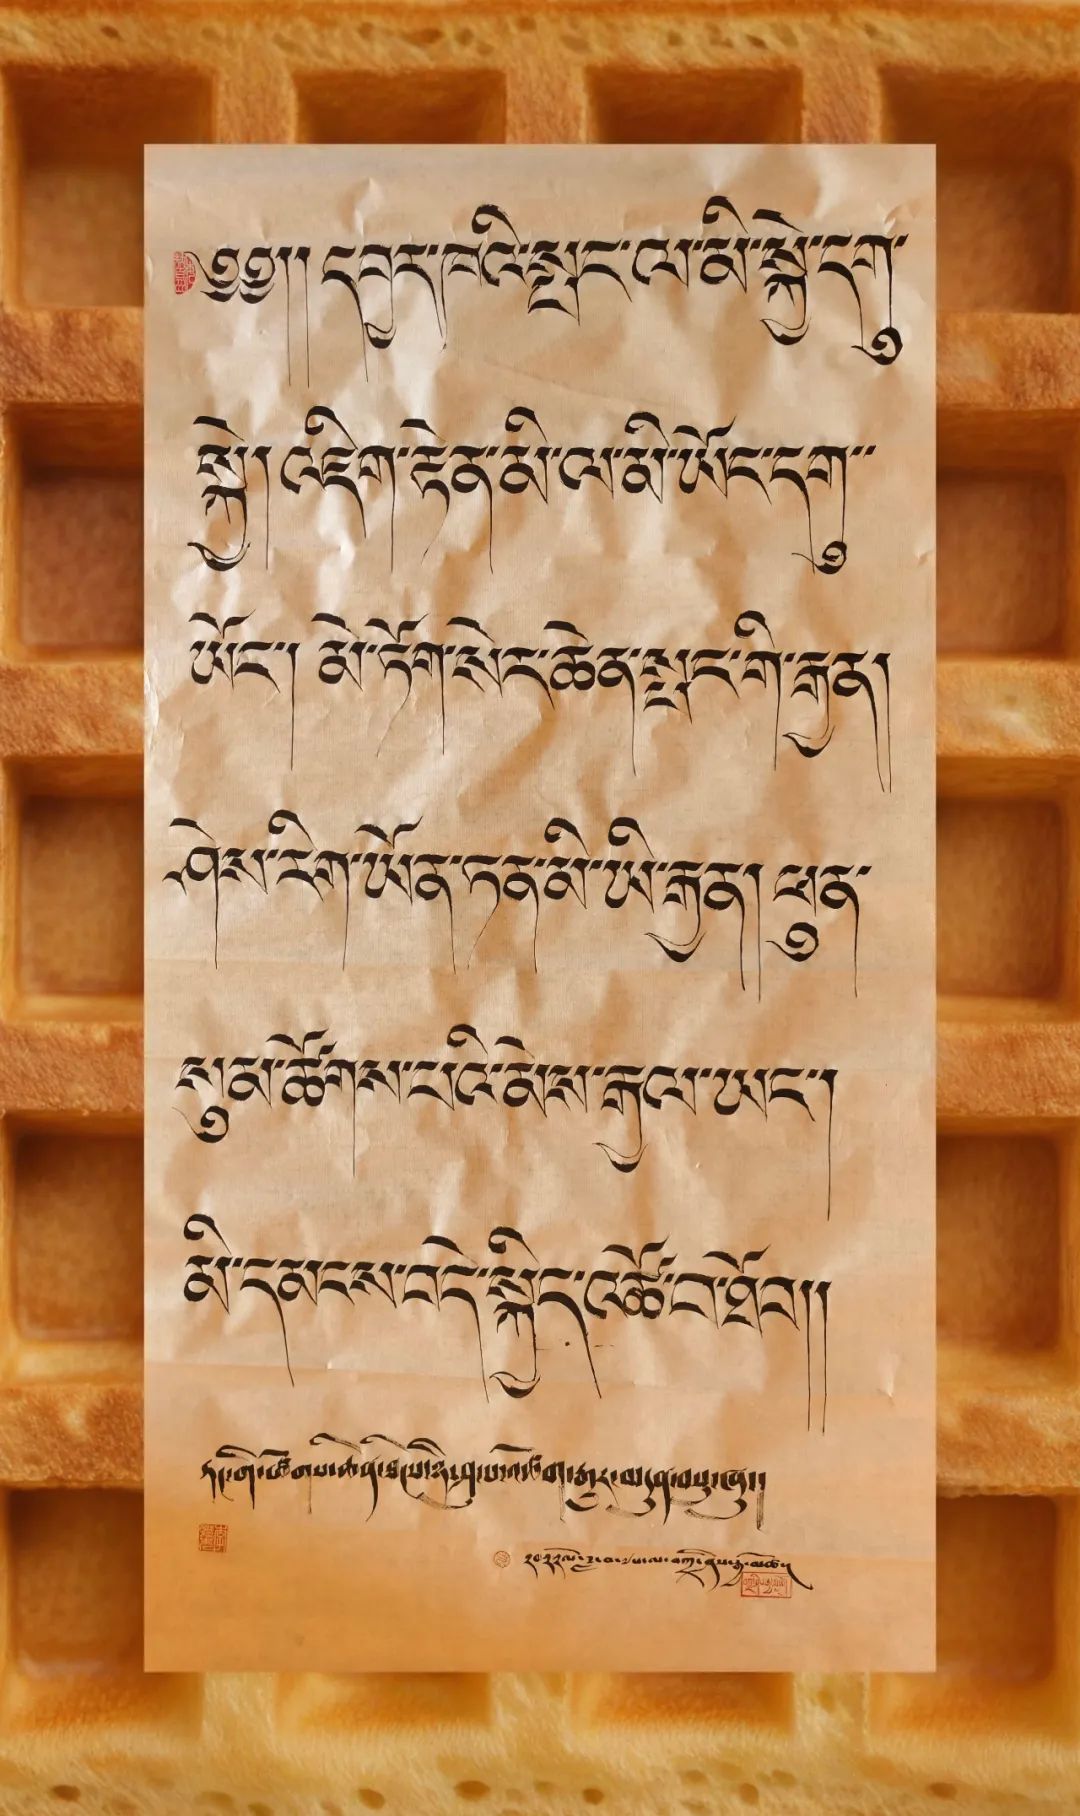 ༄༅།། དབྱར་ཁའི་སྤང་ལ་མི་སྐྱེ་དགུ་
སྐྱེ། འཇིག་རྟེན་མི་ལ་མི་ཡོང་དགུ་
ཡོང་། མེ་ཏོག་སེར་ཆེན་སྤང་གི་རྒྱན།
ཤེས་རིག་ཡོན་ཏན་མི་ཡི་རྒྱན། ཕུན་
སུམ་ཚོགས་པའི་མེས་རྒྱལ་ཡང་།
མི་དམངས་བདེ་སྐྱིད་འཚོ་བ་ཐོབ།།